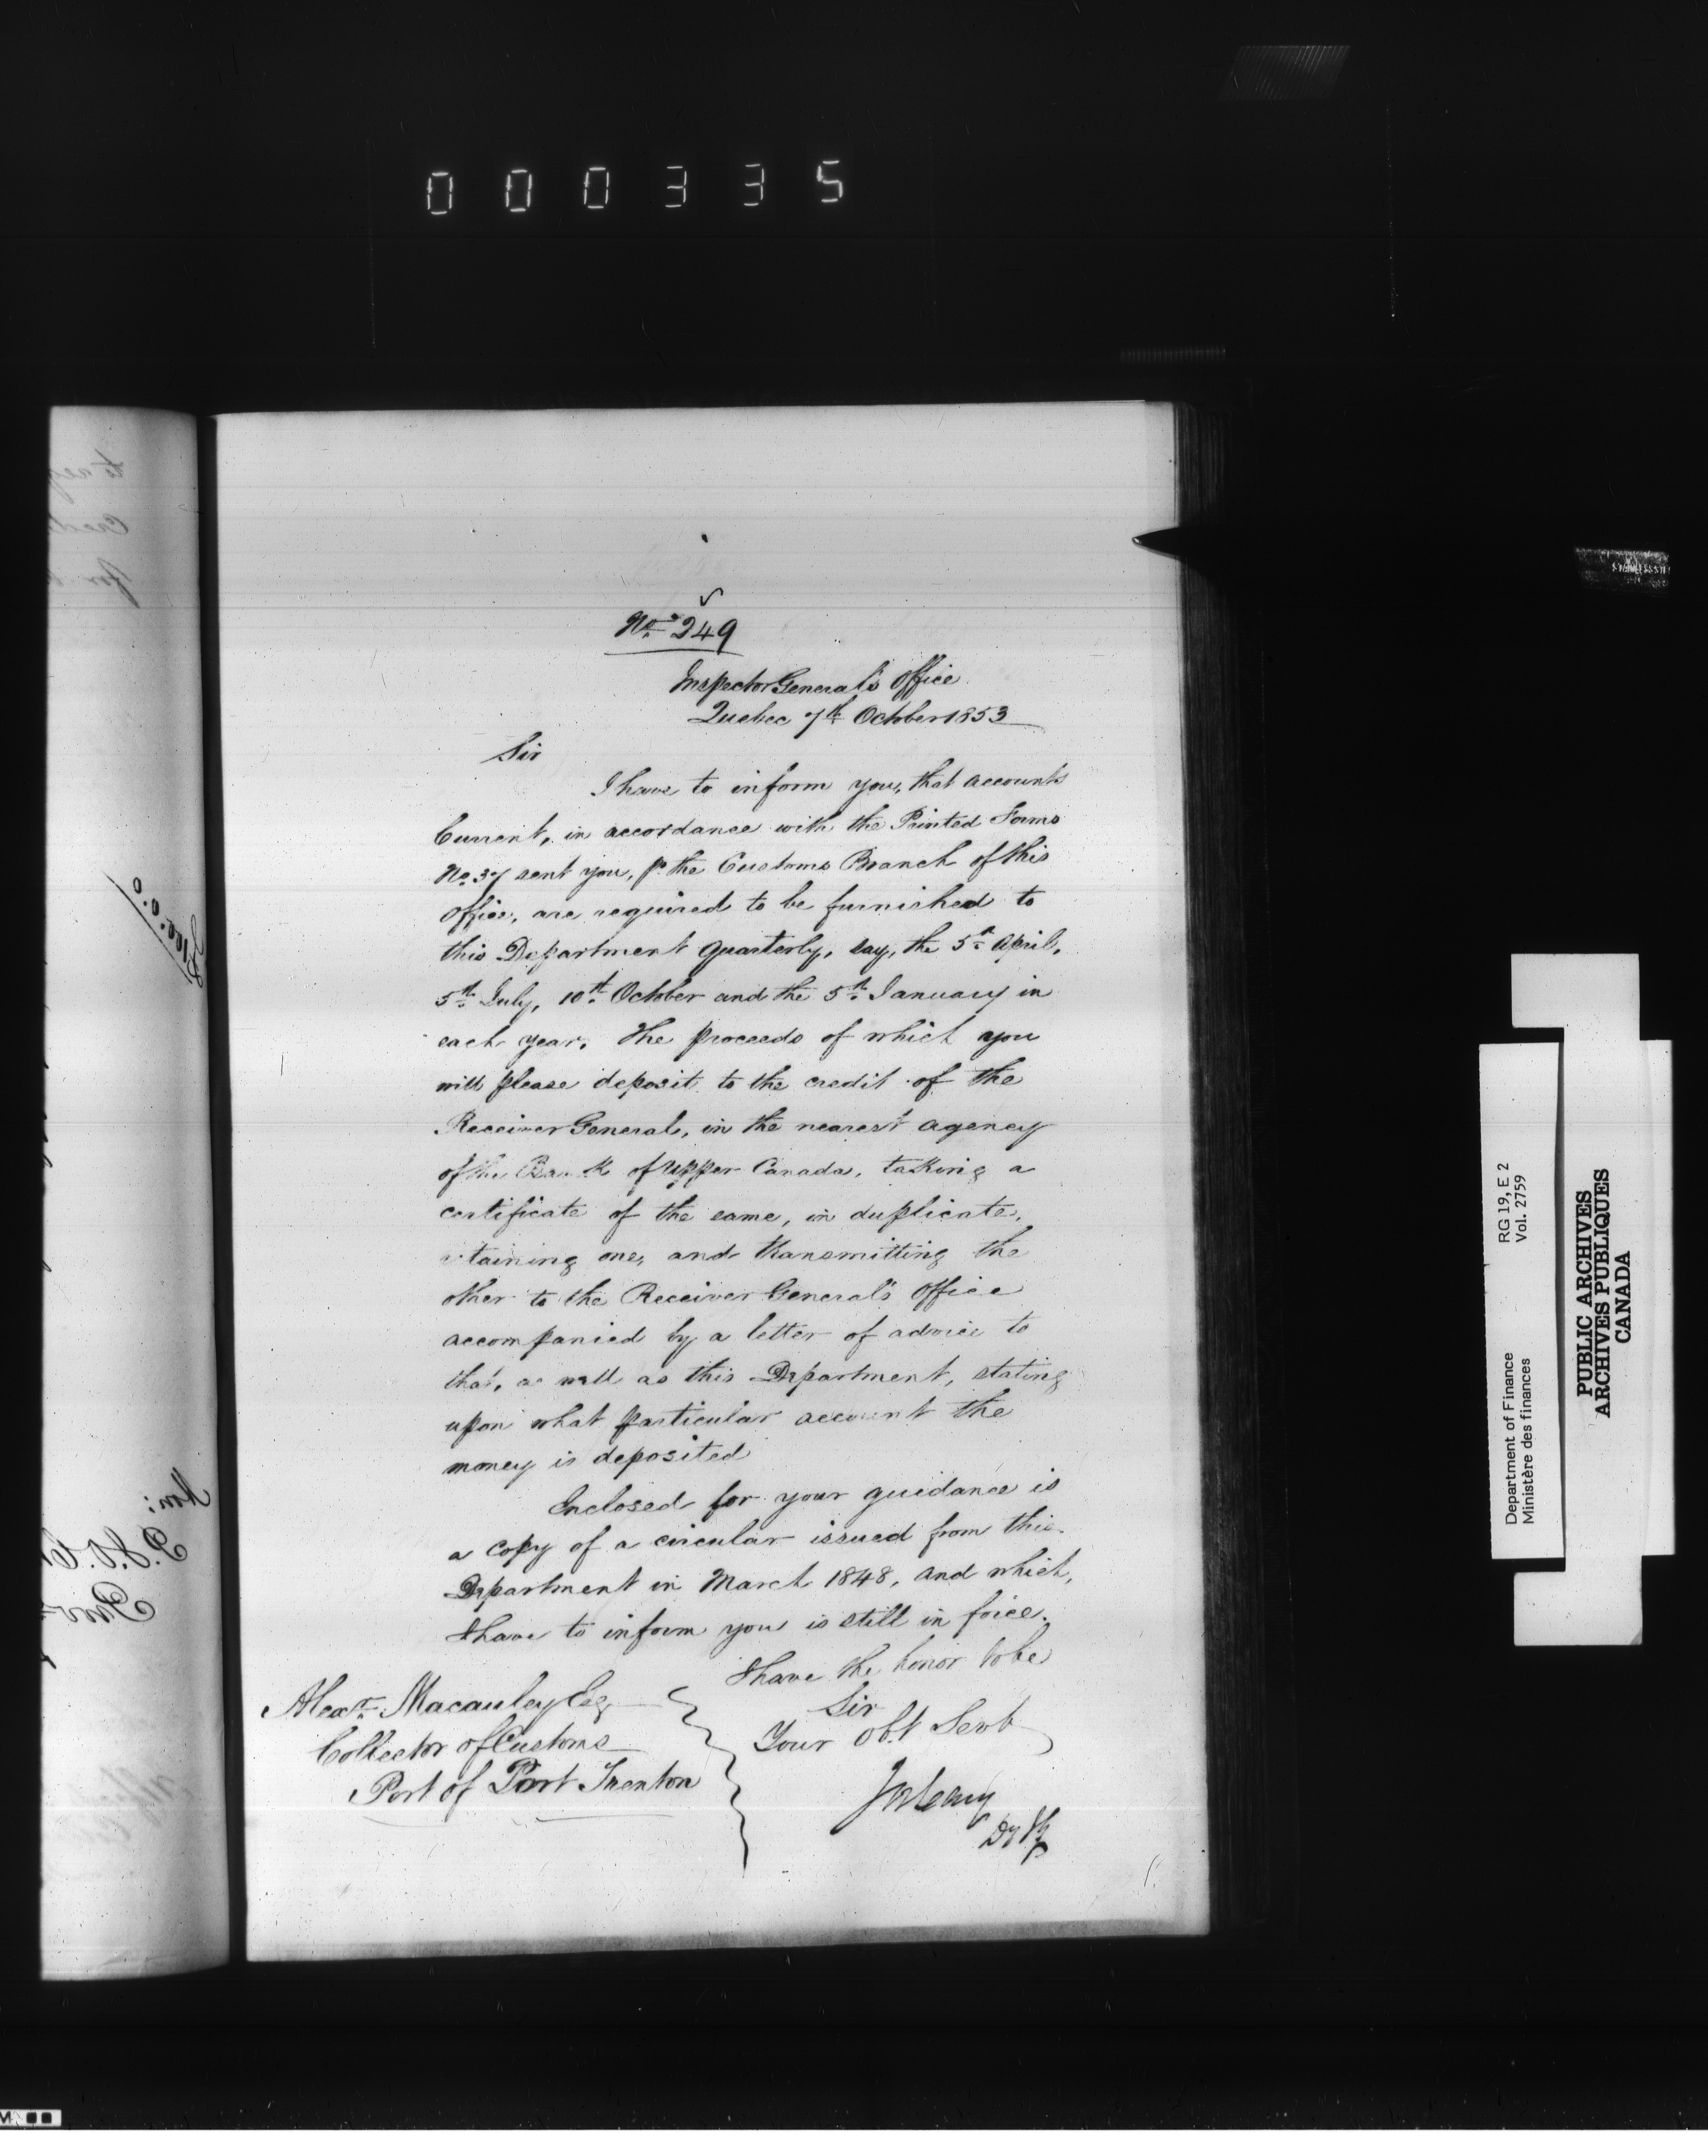 000335
No. 249
Inspector General's Office
Quebec 7th October 1853
Sir
I have to inform you, that accounts
Current, in accordance with the Printed Forms
No. 37 sent you, pr. the Customs Branch of this
Office, are required to be furnished to
this Department quarterly, say, the 5th April,
5th July, 10th October and the 5th January in
each year. The proceeds of which you
will please deposit to the credit of the
Receiver General, in the nearest agency
of the Bank of Upper Canada, taking a
certificate of the same, in duplicate,
retaining one, and transmitting the
other to the Receiver General's Office
accompanied by a letter of advice to
that, as well as this Department, stating
upon what particular account the
money is deposited
Enclosed for your guidance is
a copy of a circular issued from this
Department in March 1848, and which,
I have to inform you is still in force.
I have the honor to be
Sir
Your obt Servt
Jos Cary
Dy
Alexr. Macauley Esq
Collector of Customs
Port of Port Trenton
Department of Finance RG 19, E 2
Ministère des finances Vol. 2759
PUBLIC ARCHIVES
ARCHIVES PUBLIQUES
CANADA